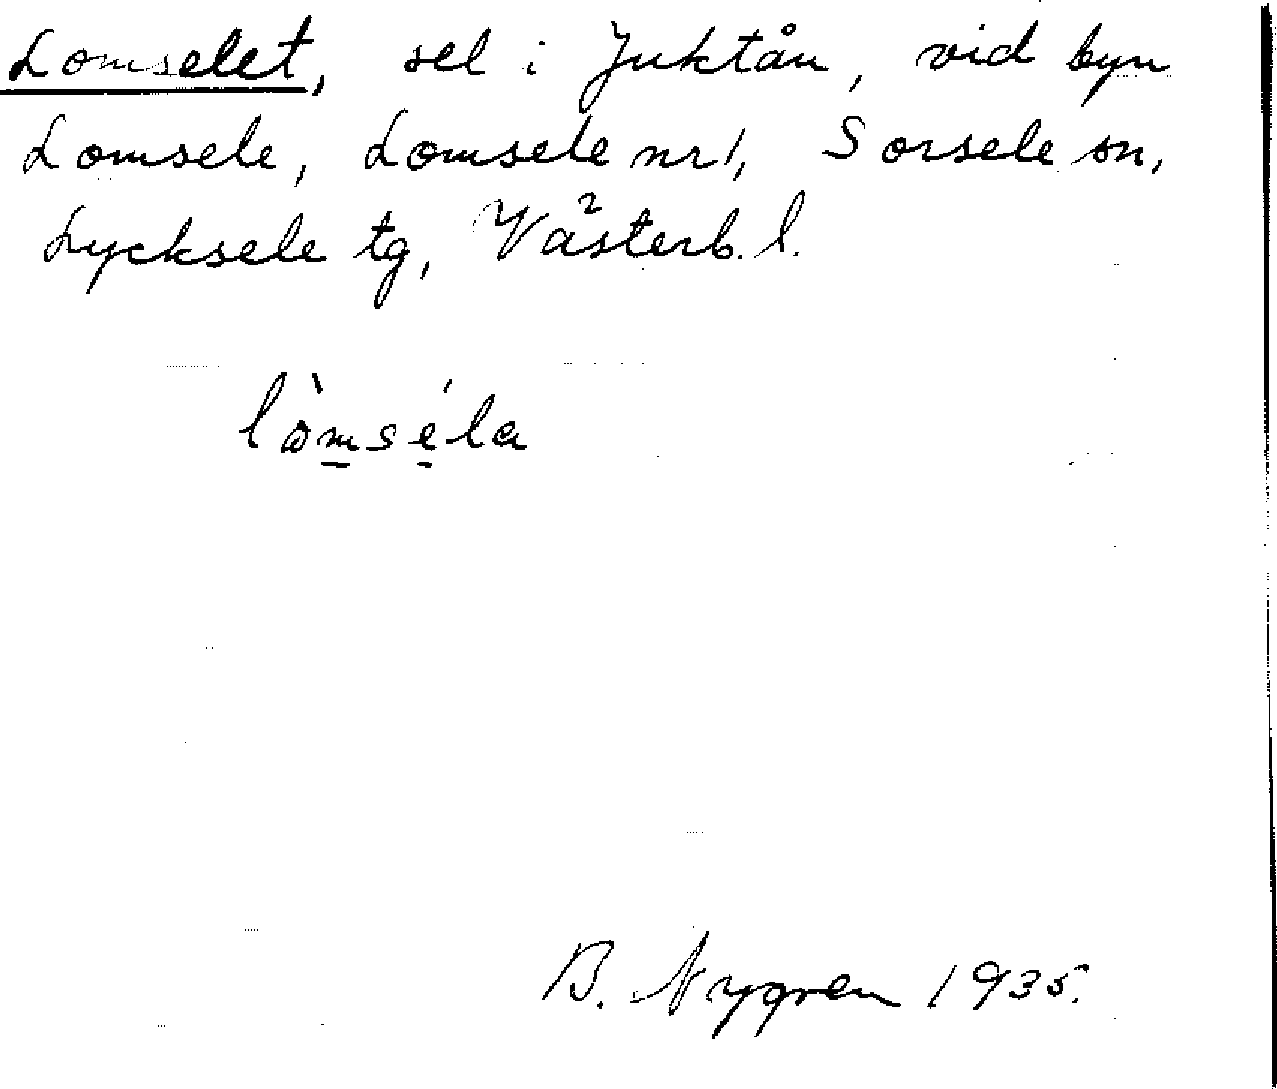 Lomselet, sel i Juktån, vid byn
Lomsele, Lomsele nr 1, Sorsele sn,
Lycksele tg, Västerb. l.
lòmséla
B. Nygren 1935.